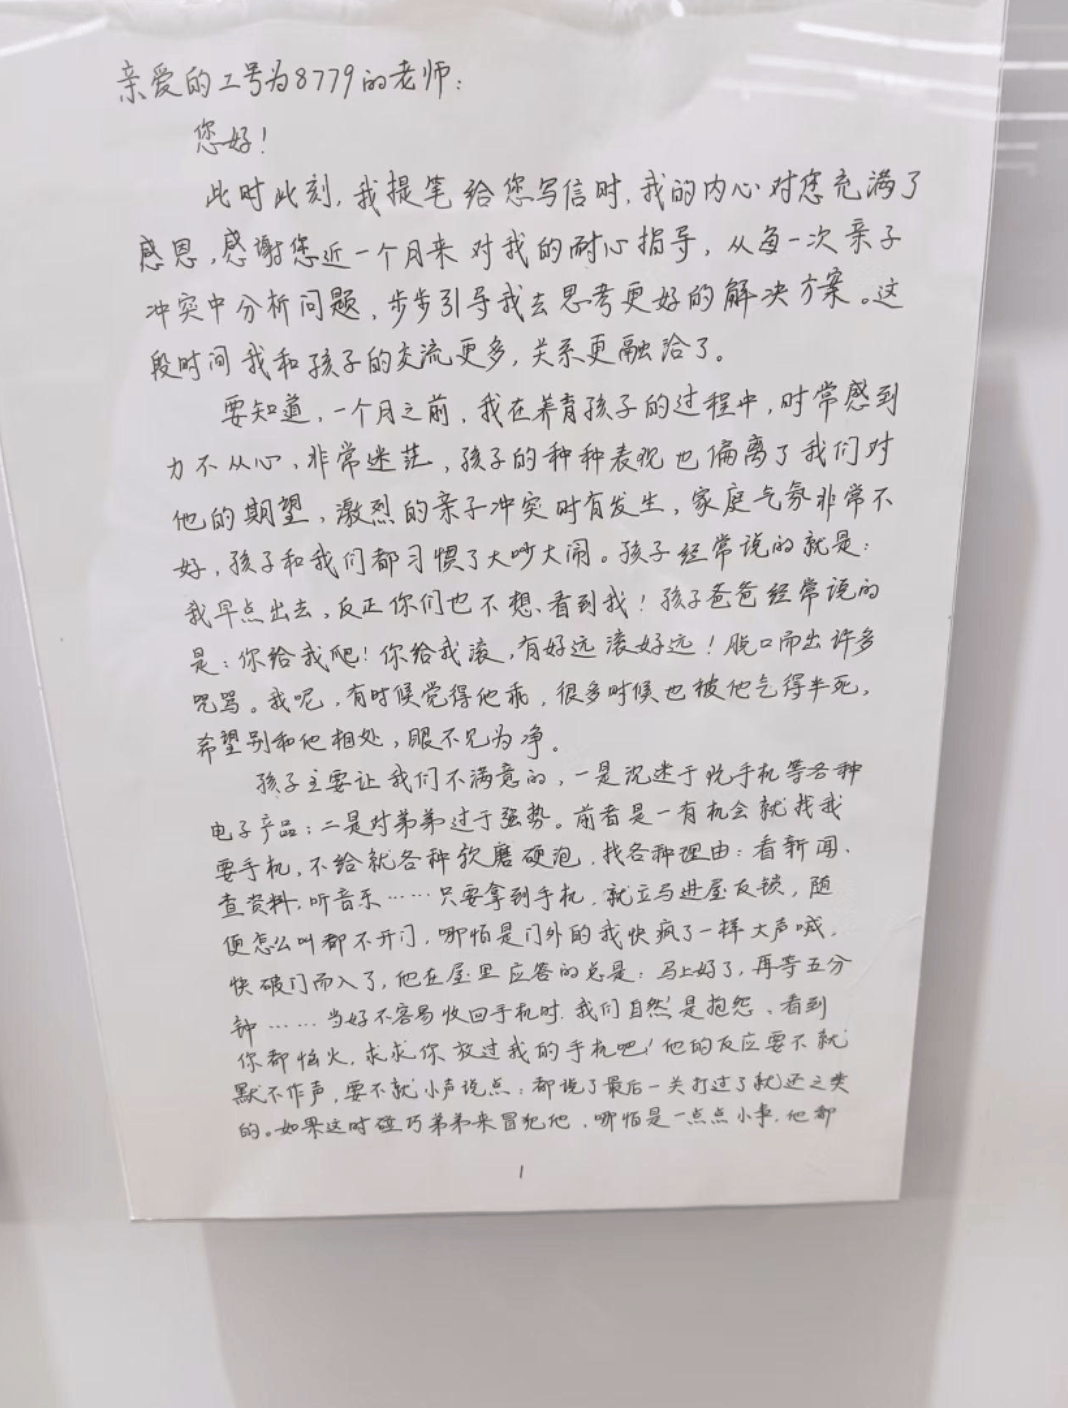 亲爱的工号为8779的老师：
您好！
此时此刻，我提笔给您写信时，我的内心对您充满了
感恩，感谢您近一个月来对我的耐心指导，从每一次亲子
冲突中分析问题，步步引导我去思考更好的解决方案。这
段时间我和孩子的交流更多，关系更融洽了。
要知道，一个月之前，我在养育孩子的过程中，时常感到
力不从心，非常迷茫，孩子的种种表现也偏离了我们对
他的期望，激烈的亲子冲突时有发生，家庭气氛非常不
好，孩子和我们都习惯了大吵大闹。孩子经常说的就是：
我早点出去，反正你们也不想看到我！孩子爸爸经常说的
是：你给我爬！你给我滚，有好远滚好远！脱口而出许多
咒骂。我呢，有时候觉得他乖，很多时候也被他气得半死，
希望别和他相处，眼不见为净。
孩子主要让我们不满意的，一是沉迷于玩手机等各种
电子产品；二是对弟弟过于强势。前者是一有机会就找我
要手机，不给就各种软磨硬泡，找各种理由：看新闻、
查资料，听音乐……只要拿到手机，就立马进屋反锁，随
便怎么叫都不开门，哪怕是门外的我快疯了一样大声喊，
快破门而入了，他在屋里应答的总是：马上好了，再等五分
钟……当好不容易收回手机时，我们自然是抱怨、看到
你都恼火，求求你放过我的手机吧！他的反应要不就
默不作声，要不就小声说点：都说了最后一关打过了就还之类
的。如果这时碰巧弟弟来冒犯他，哪怕是一点点小事，他都
1